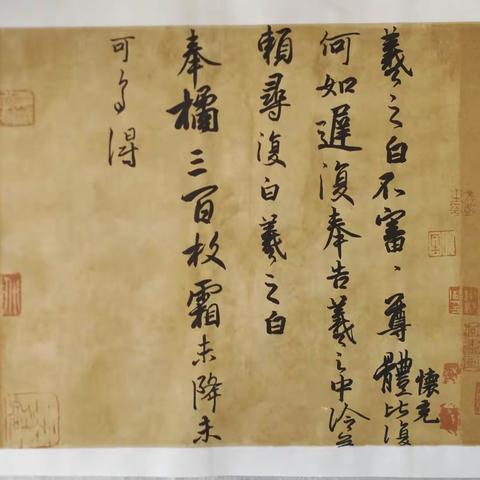 羲之白不審、尊體比復
懷充
何如遲復奉告羲之中冷無
賴尋復白羲之白
奉橘三百枚霜未降未
可多得